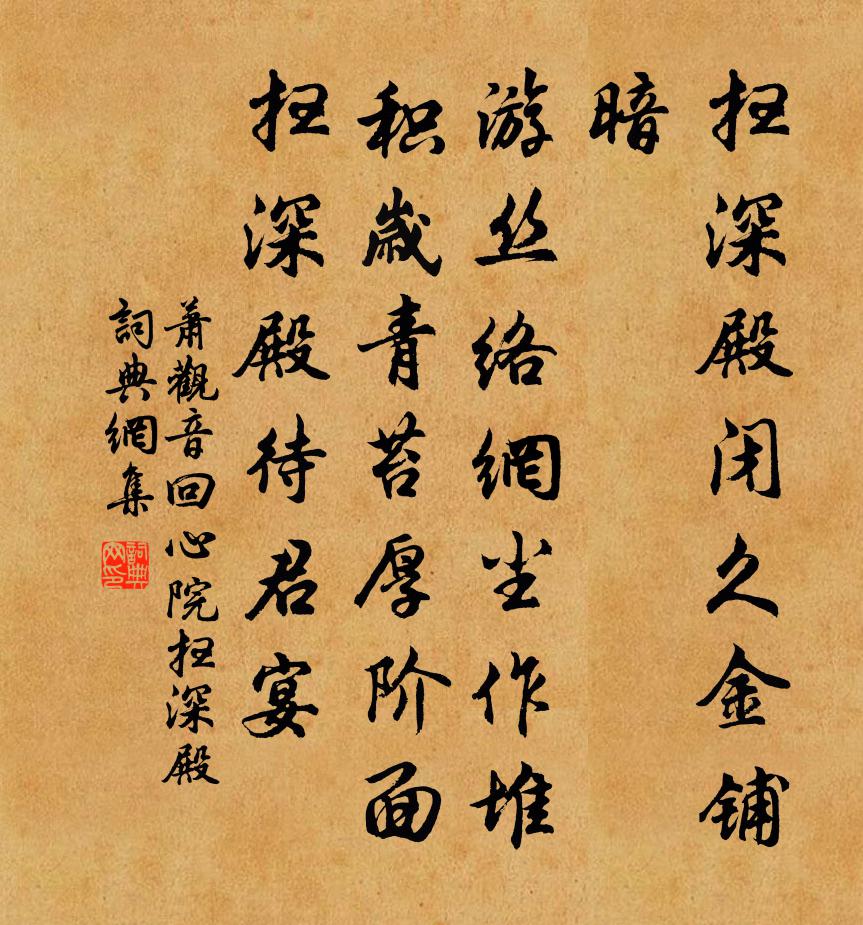 扫深殿闭久金铺
暗
游丝络網尘作堆
积歲青苔厚阶面
扫深殿待君宴
萧觀音回心院扫深殿
詞典網集
詞典網印